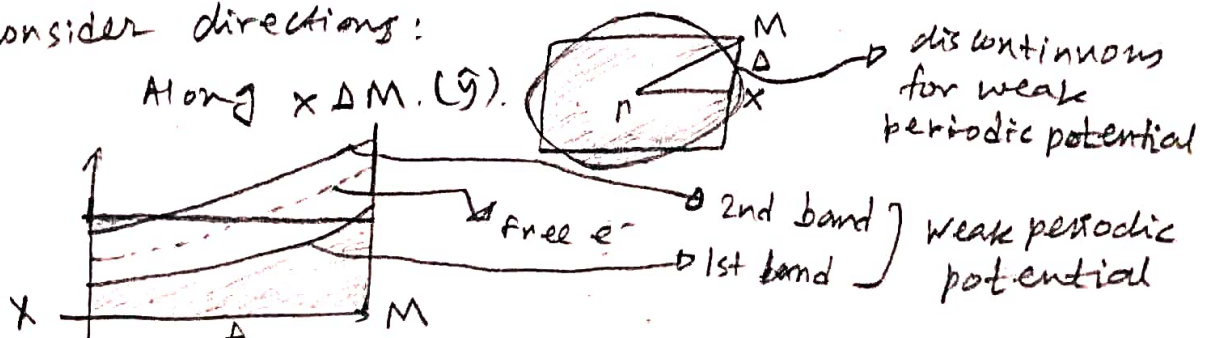 onsider directions:
Along X Δ M. (ŷ).
M
Δ
X
Γ
discontinuous
for weak
periodic potential
2nd band
free e⁻
1st band
weak periodic
potential
X
Δ
M